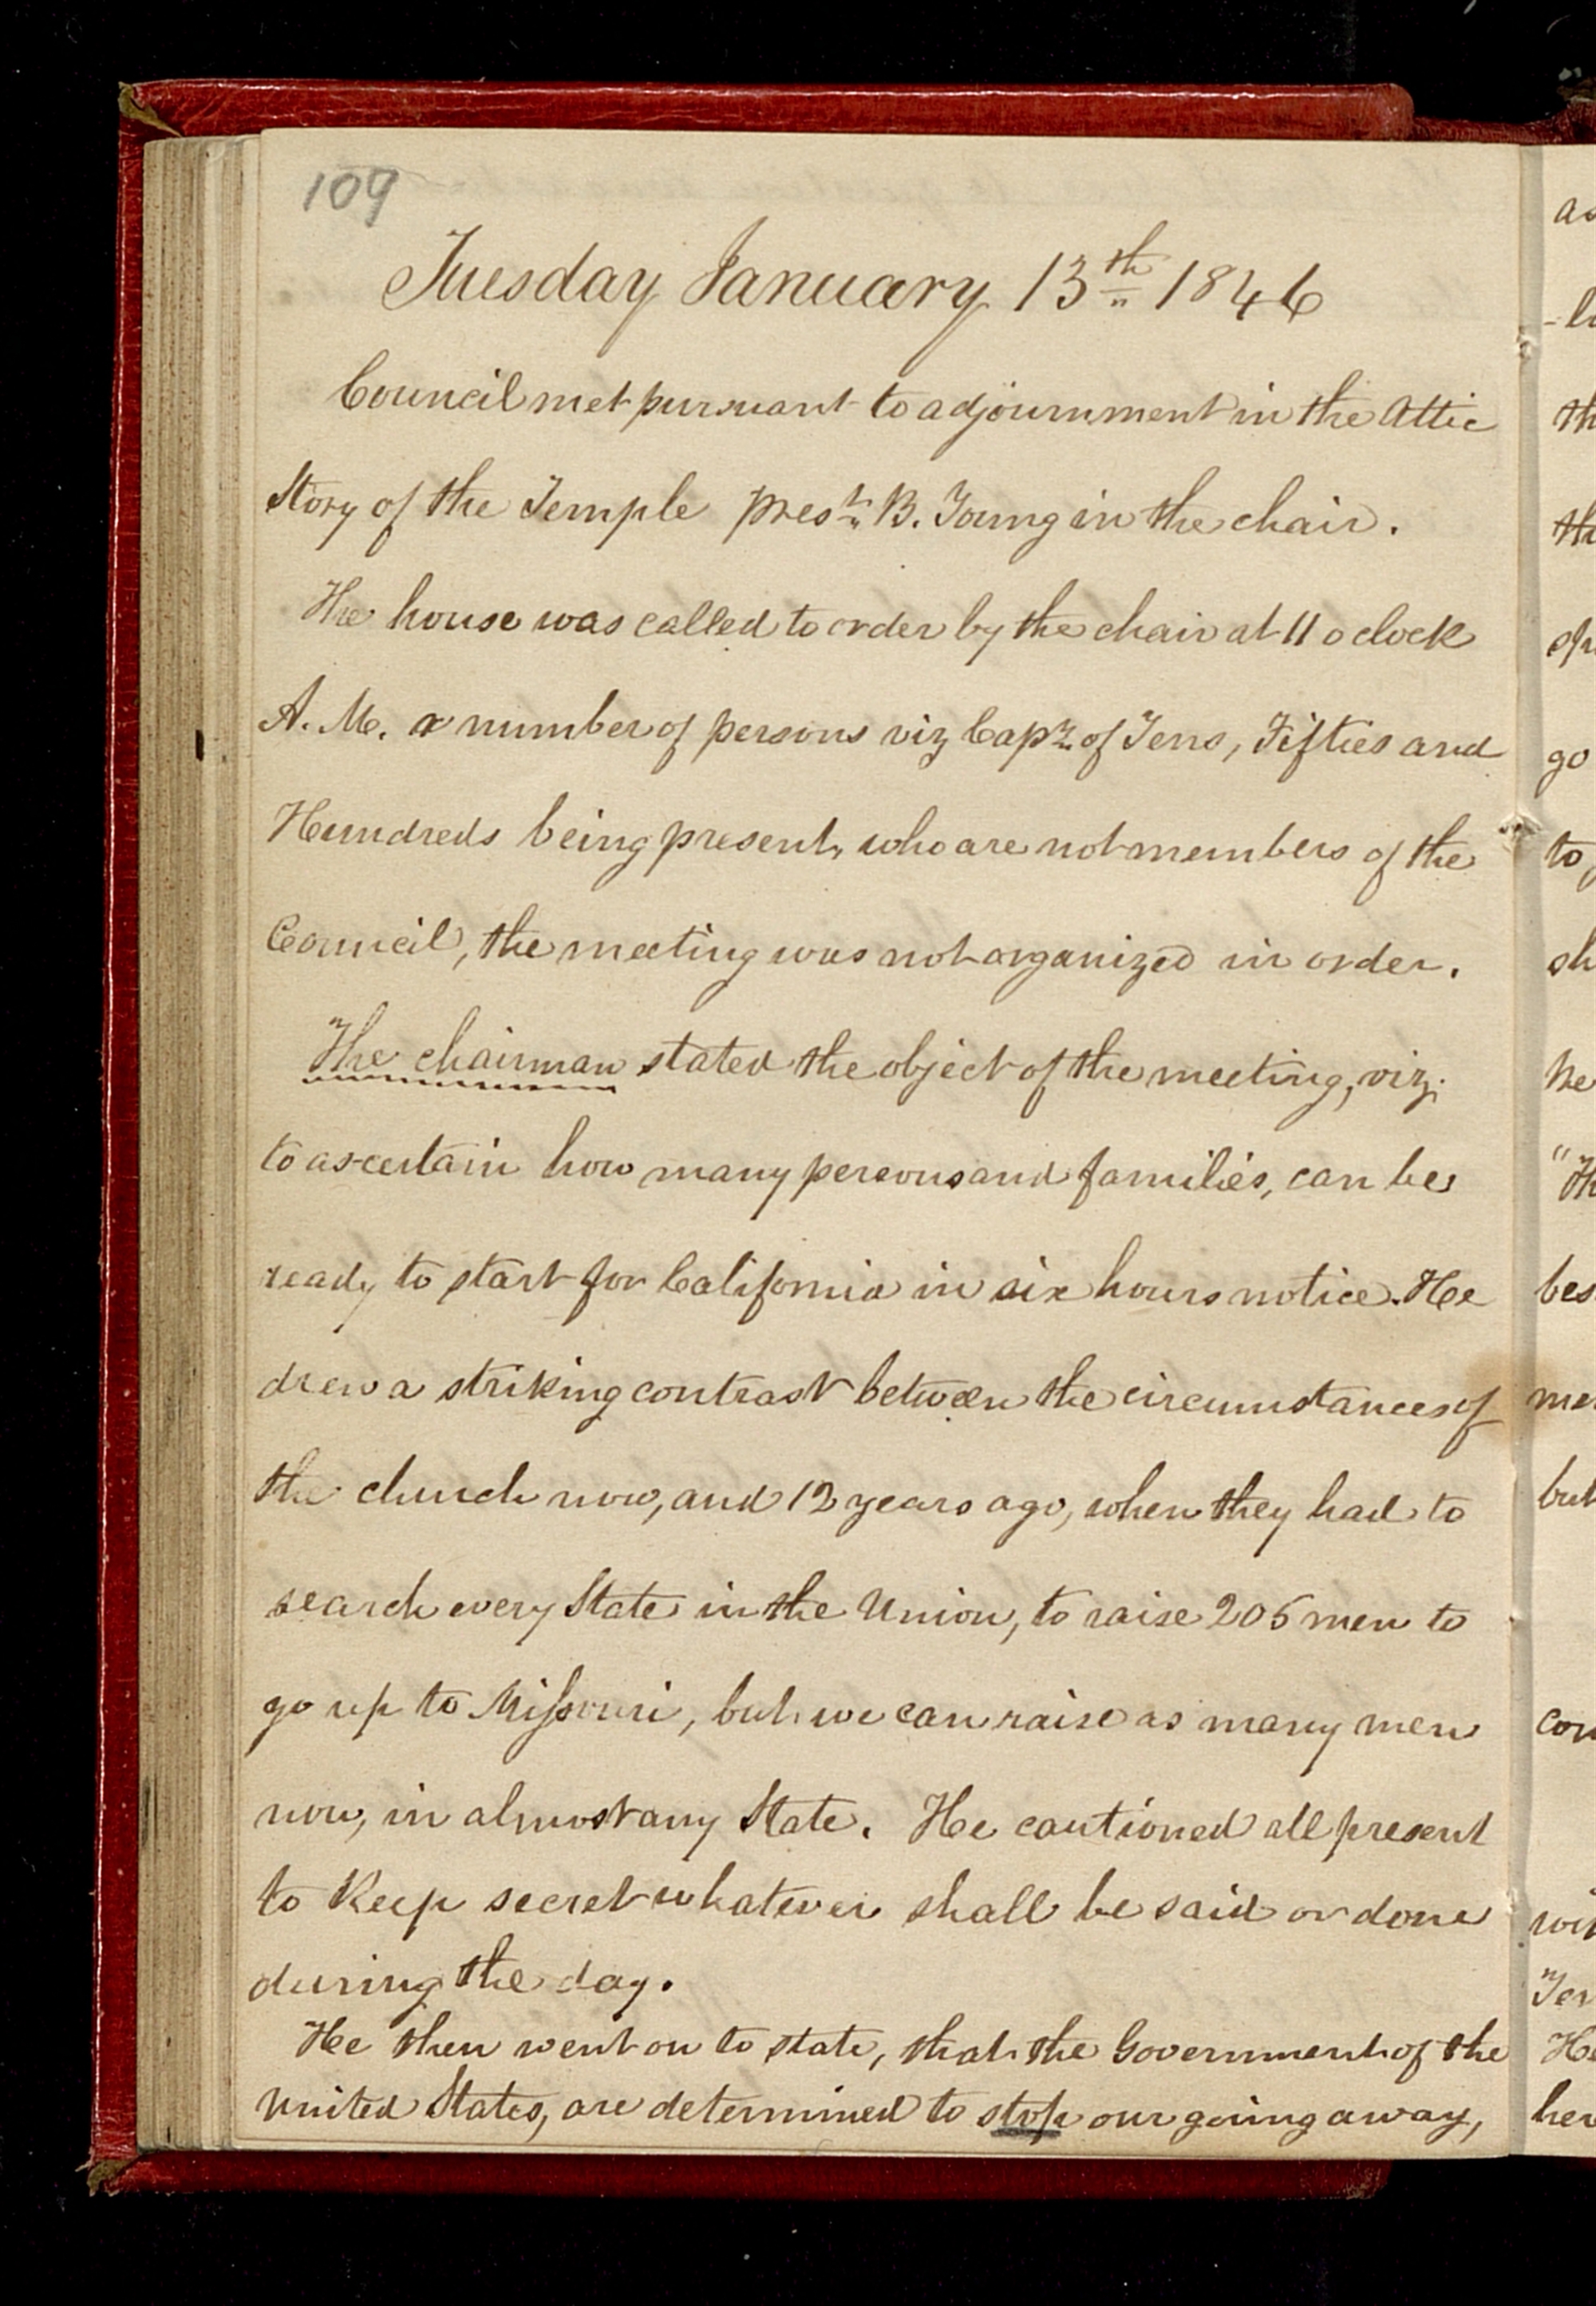 109
Tuesday January 13th 1846
Council met pursuant to adjournment in the Attic
Story of the Temple prest. B. Young in the chair.
The house was called to order by the chair at 11 o clock
A. M. a number of persons viz Capts. of Tens, Fifties and
Hundreds being present, who are not members of the
Council, the meeting was not organized in order.
The chairman stated the object of the meeting, viz.
to ascertain how many persons and families, can be
ready to start for California in six hours notice. He
drew a striking contrast between the circumstances of
the church now, and 12 years ago, when they had to
search every State in the Union, to raise 205 men to
go up to Missouri, but we can raise as many men
now, in almost any State. He cautioned all present
to Keep secret whatever shall be said or done
during the day.
He then went on to state, that the Government of the
United States, are determined to stop our going away,